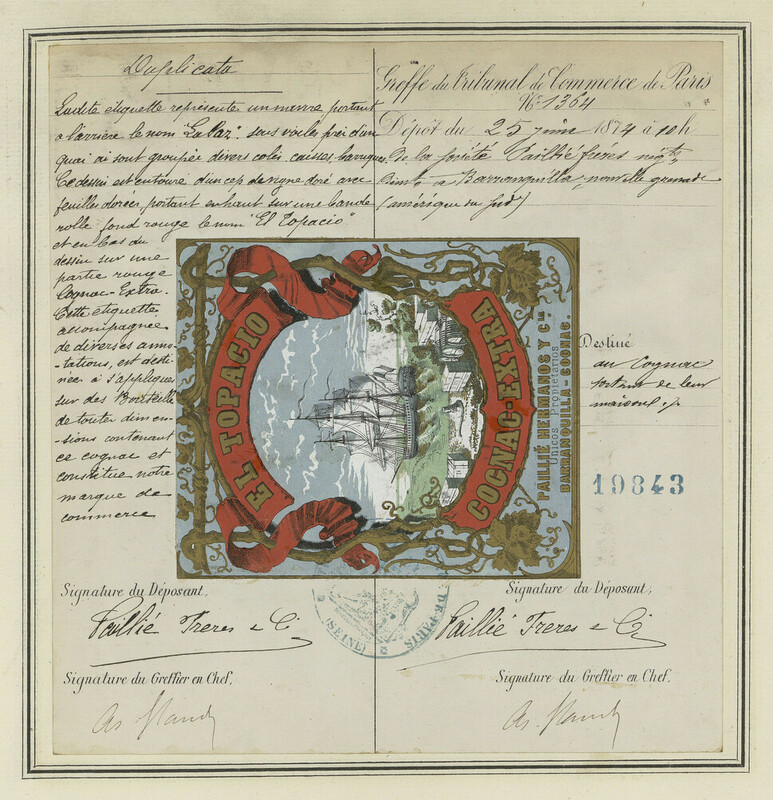 Duplicata
Ladite etiquette représente un navire portant
a l'arrière le nom "Lalaz" sous voiles près d'un
quai où sont groupés divers colis caisses barriques
Ce dessin est entouré d'un cep de vigne doré avec
feuilles dorées, portant en haut sur une bande
rolle fond rouge le nom "El Topacio"
et en bas du
dessin sur une
partie rouge
Cognac-Extra.
Cette étiquette
accompagnée
de diverses anno-
tations, est desti-
née à s'appliquer
sur des Bouteilles
de toutes dimen-
sions contenant
ce cognac et
constitue notre
marque de
commerce
Greffe du Tribunal de Commerce de Paris
No. 1364
Dépôt du 25 juin 1874 à 10h
de la société Paillié frères négts
à Barranquilla, nouvelle grenade
(amérique du sud)
EL TOPACIO
COGNAC-EXTRA
PAILLIÉ HERMANOS Y Cia
Unicos Propietarios
BARRANQUILLA-COGNAC.
Destiné
au Cognac
sortant de leur
maison
19843
DE PARIS
(SEINE)
Signature du Déposant,
Paillié Freres & Ci
Signature du Greffier en Chef,
Signature du Déposant,
Paillié Freres & Ci
Signature du Greffier en Chef,